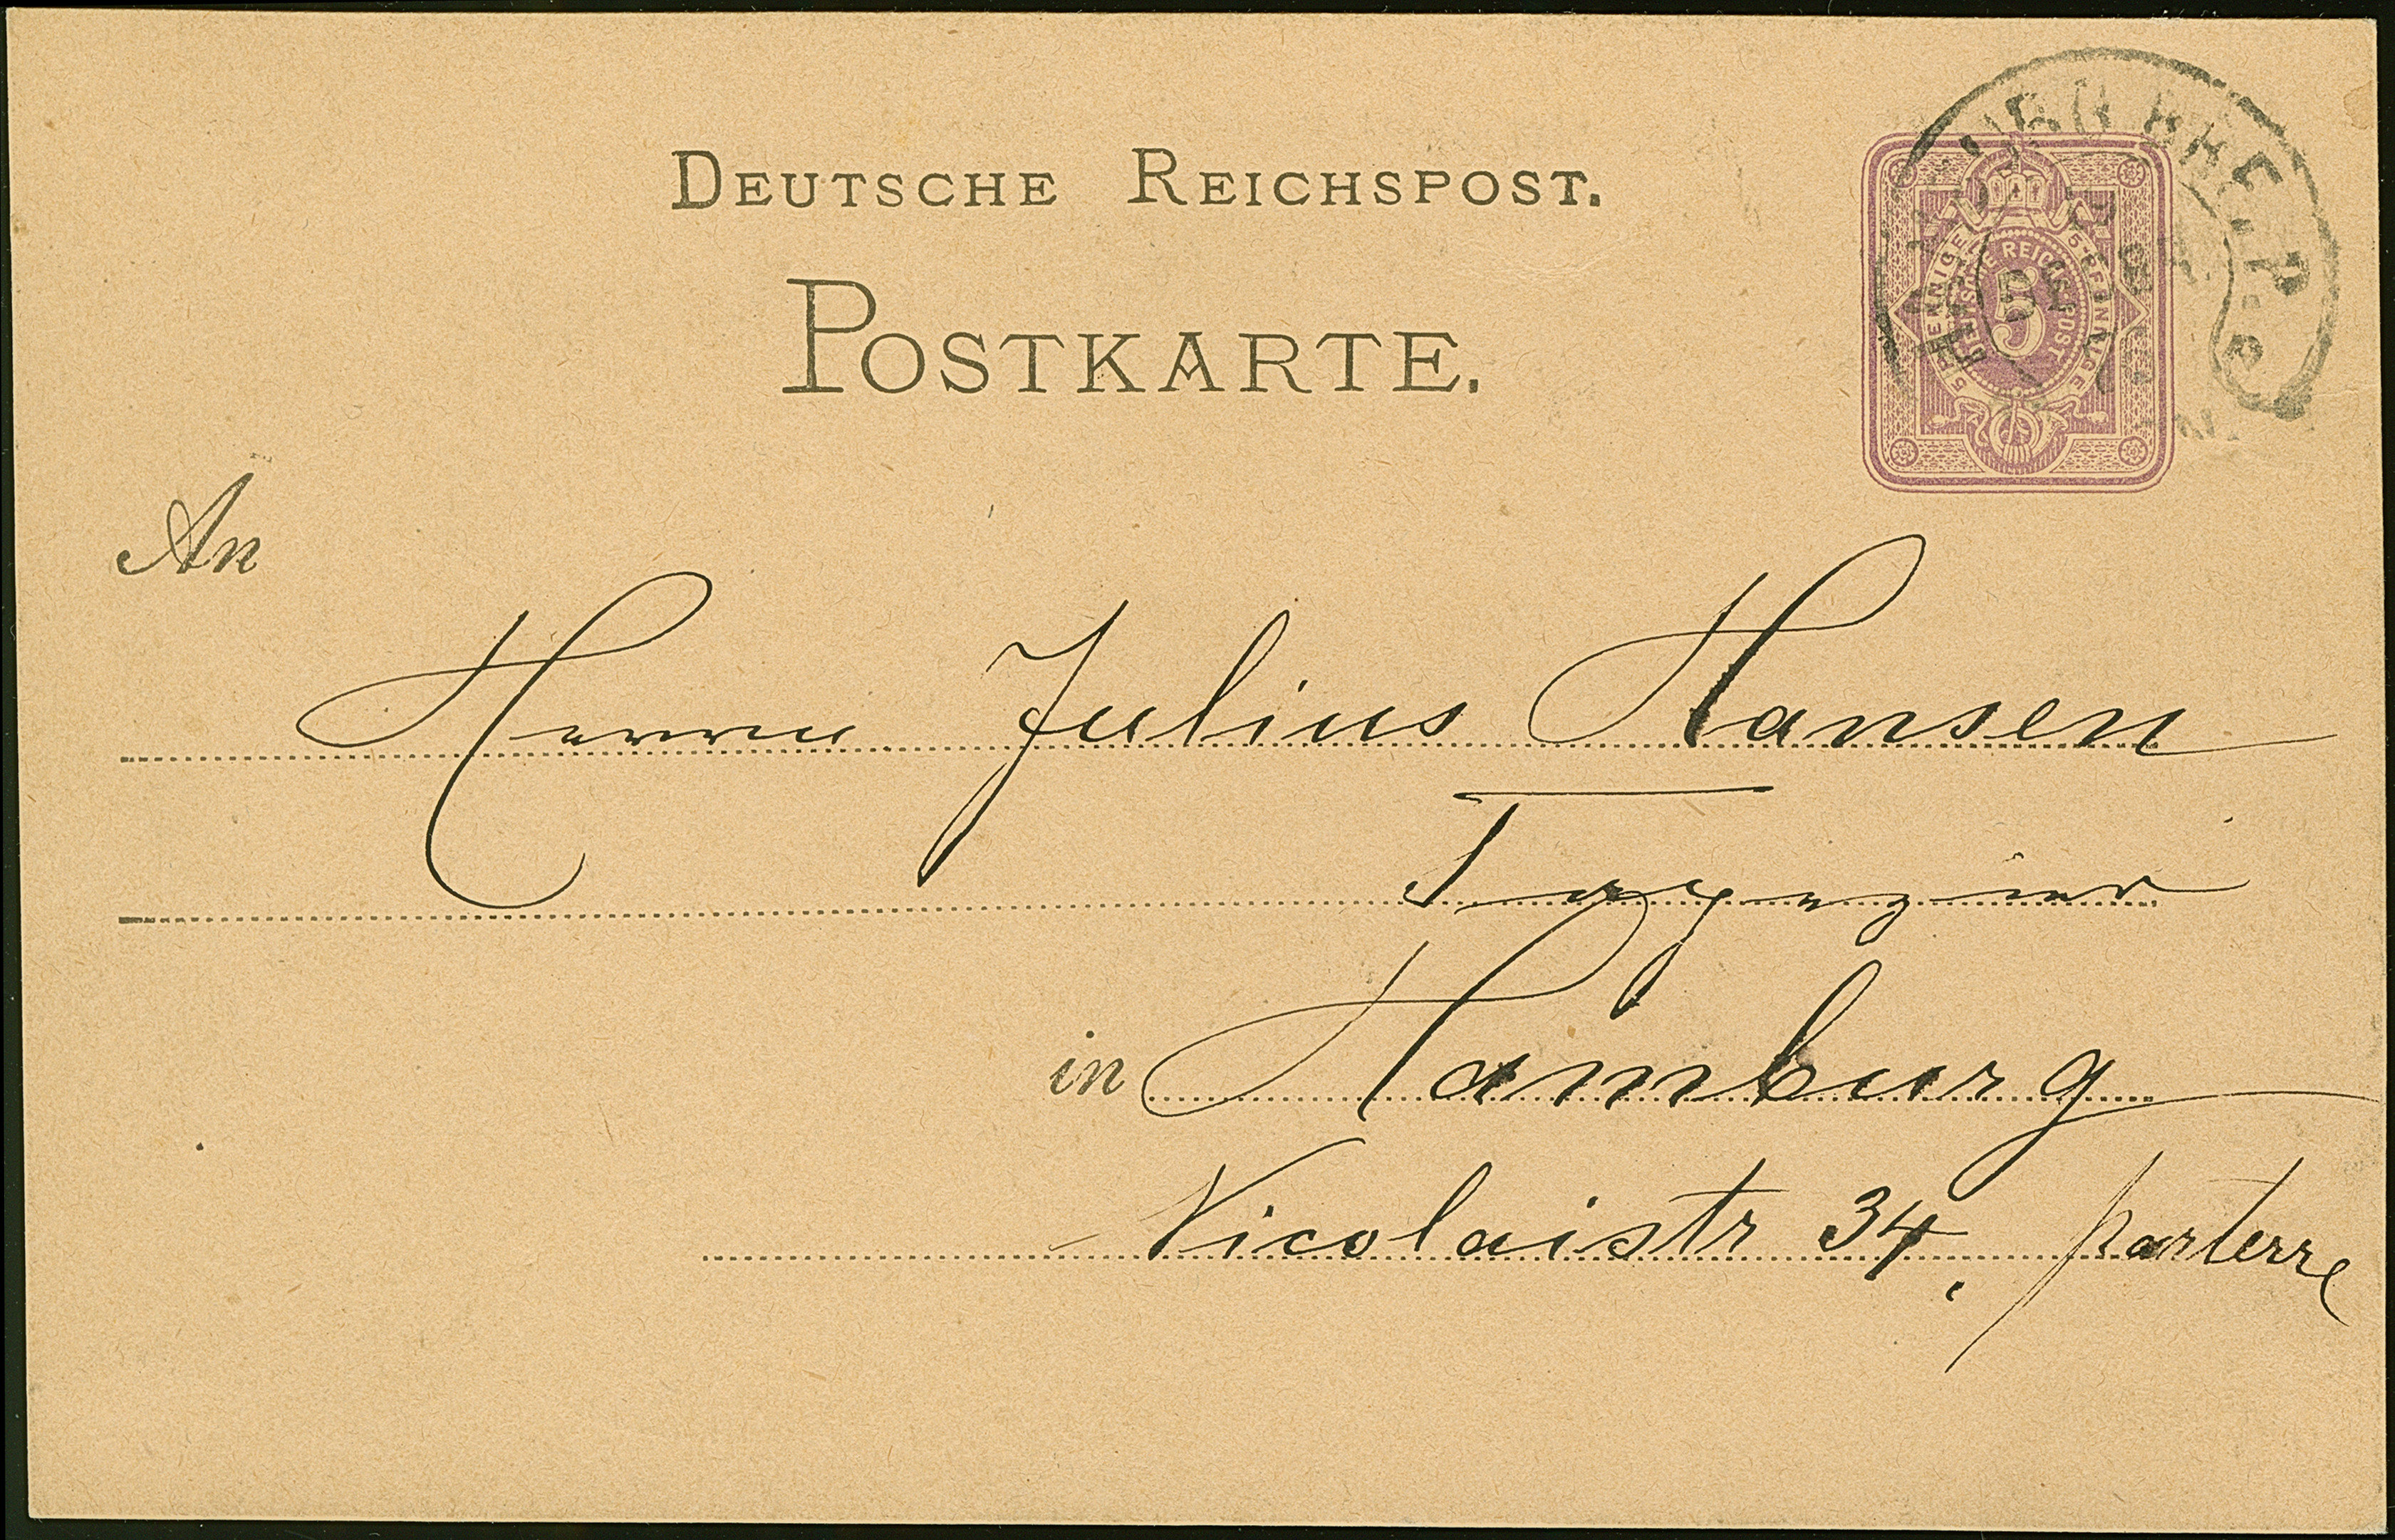 DEUTSCHE REICHSPOST.
POSTKARTE.
5 PFENNIGE 5 PFENNIGE
DEUTSCHE REICHSPOST
5
An
Herrn Julius Hansen
Tapezier
in Hamburg
Nicolaistr 34. parterre